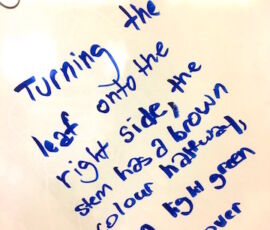 Turning the
leaf onto the
right side, the
stem has a brown
colour halfway,
light green
over